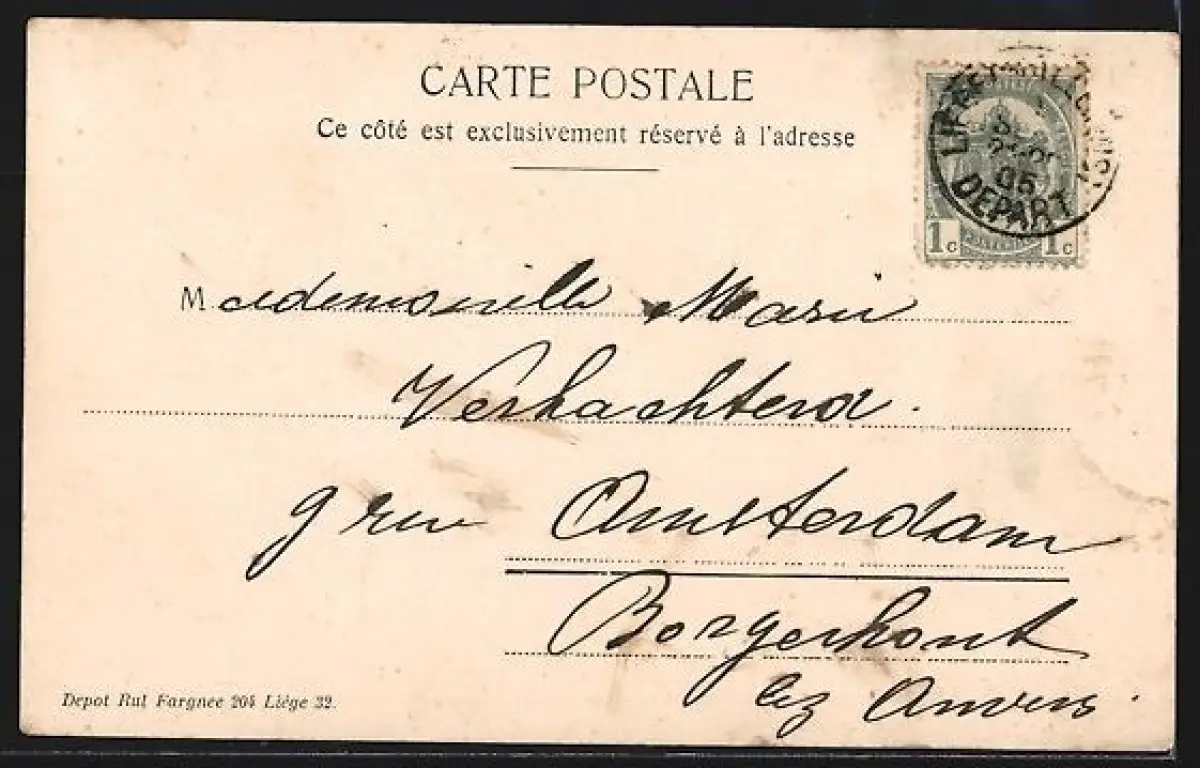 CARTE POSTALE
Ce côté est exclusivement réservé à l'adresse
DEPART
05
1c 1c
Mademoiselle Marie
Verhachtera.
9 rue Amsterdam
Borgerhout
lez Anvers.
Depot Rul Fargnee 204 Liége 32.